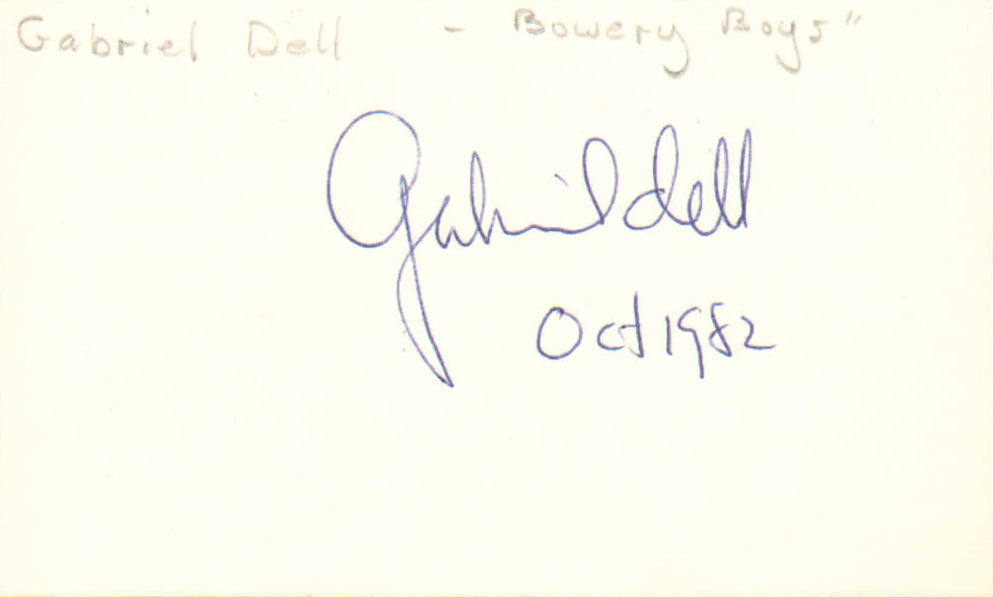 Gabriel Dell - Bowery Boys"
Gabriel Dell
Oct 1982